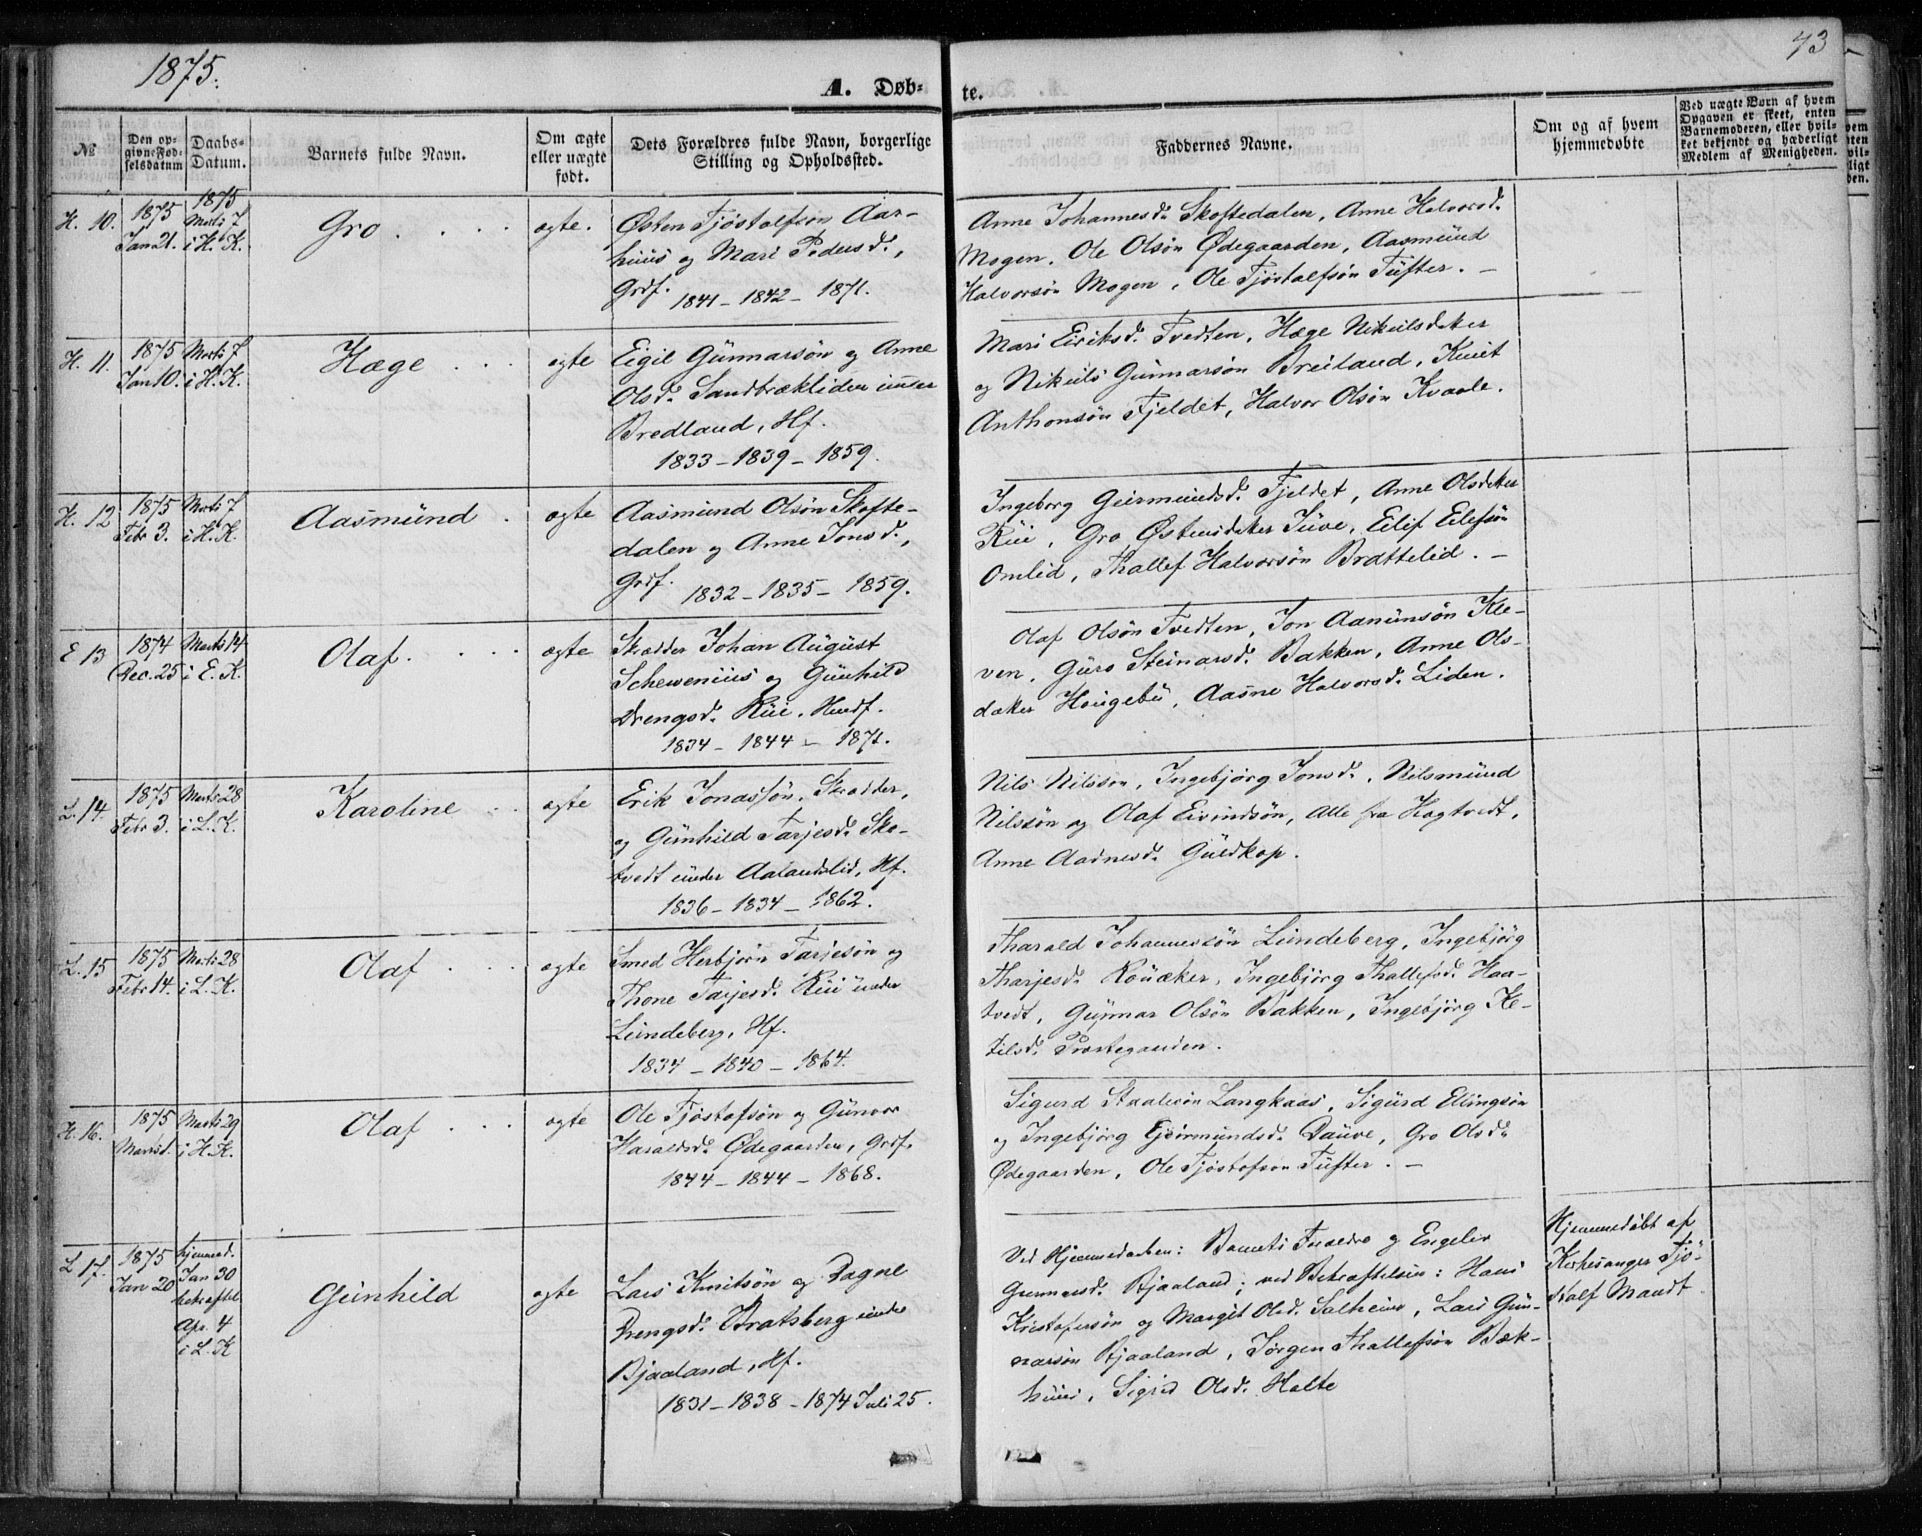 1875.
73
A. Døb-
te.
№
Den op-
givne Fød-
selsdatum
Daabs-
Datum.
Barnets fulde Navn.
Om ægte
eller uægte
født.
Dets Forældres fulde Navn, borgerlige
Stilling og Opholdssted.
Faddernes Navne.
Om og af hvem
hjemmedøbte
Ved uægte Børn af hvem
Opgaven er skeet, enten
Barnemoderen, eller hvil-
ket bekjendt og hæderligt
Medlem af Menigheden.
H. 10.
1875
Jan 21.
1875
Marts 7
i H. K.
Gro . . . .
ægte.
Østen Tjøstolfsøn Aar-
huus og Mari Pedersd.,
Grdf. 1841 - 1842 - 1871.
Anne Johannesd. Skoftedalen, Anne Halvorsd.
Mogen, Ole Olsøn Ødegaarden, Aasmund
Halvorsøn Mogen, Ole Tjøstolfsøn Tufter. -
H. 11.
1875
Jan 10.
Marts 7
i H. K.
Hæge . . .
ægte
Eigil Gunnarsøn og Anne
Olsd. Sandbrækliden under
Bredland, Hf.
1833 - 1839 - 1859.
Mari Eiriksd. Tvedten, Hæge Nikulsdatter
og Nikuls Gunnarsøn Breiland, Knut
Anthonsøn Fjeldet, Halvor Olsøn Kvaale.
H. 12
1875
Febr 3.
Marts 7
i H. K.
Aasmund .
ægte
Aasmund Olsøn Skofte-
dalen og Anne Jonsd.,
Grdf. 1832 - 1835 - 1859.
Ingeborg Geirmundsd. Fjeldet, Anne Olsdatter
Rui, Gro Østensdatter Juve, Eilif Eilefsøn
Omlid, Thallef Halvorsøn Brattelid. -
E 13
1874
Dec. 25
Marts 14
i E. K.
Olaf. . . .
ægte
Skrædder Johan August
Schewenius og Gunhild
Drengsd. Rui. Husf.
1834 - 1844 - 1871.
Olaf Olsøn Tvedten, Jon Aanunsøn Kle-
ven, Guro Steinarsd. Bakken, Anne Ols-
datter Haugebu, Aasne Halvorsd. Liden.
L. 14.
1875
Febr 3.
Marts 28
i L. K.
Karoline . .
ægte
Erik Jonassøn, Skrædder,
og Gunhild Tarjesd. Sko-
tvedt under Aalandslid, Hf.
1836 - 1834 - 1862.
Nils Nilssøn, Ingebjørg Jonsd., Nilsmund
Nilssøn og Olaf Eivindsøn, alle fra Hogtvedt,
Anne Aadnesd. Guldkop.
L. 15
1875
Febr 14.
Marts 28
i L. K.
Olaf . . .
ægte
Smed Herbjørn Tarjesøn og
Thone Tarjesd. Rui under
Lundeberg, Hf.
1834 - 1840 - 1864.
Tharald Johannessøn Lundeberg, Ingebjørg
Tharjesd. Rouæker, Ingebjørg Thallefsd. Haa-
tvedt, Gunnar Olsøn Bakken, Ingebjørg Ke-
tilsd. Præstegaarden.
H. 16.
1875
Marts 1.
Marts 29
i H. K.
Olaf . . .
ægte
Ole Tjøstofsøn og Gunvor
Haraldsd. Ødegaarden, Grdf.
1844 - 1844 - 1868.
Sigurd Staalesøn Langkaas, Sigurd Ellingsøn
og Ingebjørg Gjeirmundsd. Dauve, Gro Olsd.
Ødegaarden, Ole Tjøstofsøn Tufter. -
L 17.
1875
Jan 20
hjemmed.
Jan 30
bekræftet
Apr. 4
i L. K
Gunhild
ægte
Lars Knutsøn og Dagne
Drengsd. Bratsberg under
Bjaaland, Hf.
1831 - 1838 - 1874 Juli 25.
Ved Hjemmedaaben: Barnets Forældre og Engelev
Gunnarsd. Bjaaland; ved Bekræftelsen: Hans
Kristofersøn og Margit Olsd. Salheim, Lars Gun-
narsøn Bjaaland, Jørgen Thallefsøn Bæk-
huus, Sigrid Olsd. Halte
Hjemmedøbt af
Kirkesanger Tjø-
stolf Mandt